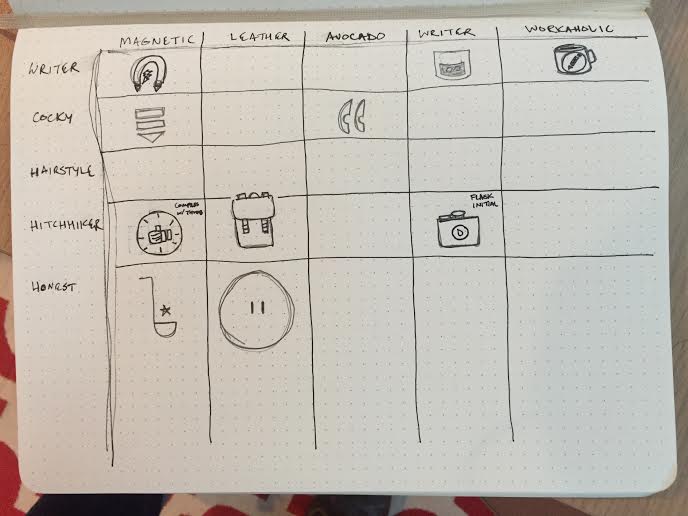 MAGNETIC LEATHER AVOCADO WRITER WORKAHOLIC
WRITER
COCKY
HAIRSTYLE
HITCHHIKER
COMPASS
W/ THUMB
FLASK
INITIAL
D
HONEST